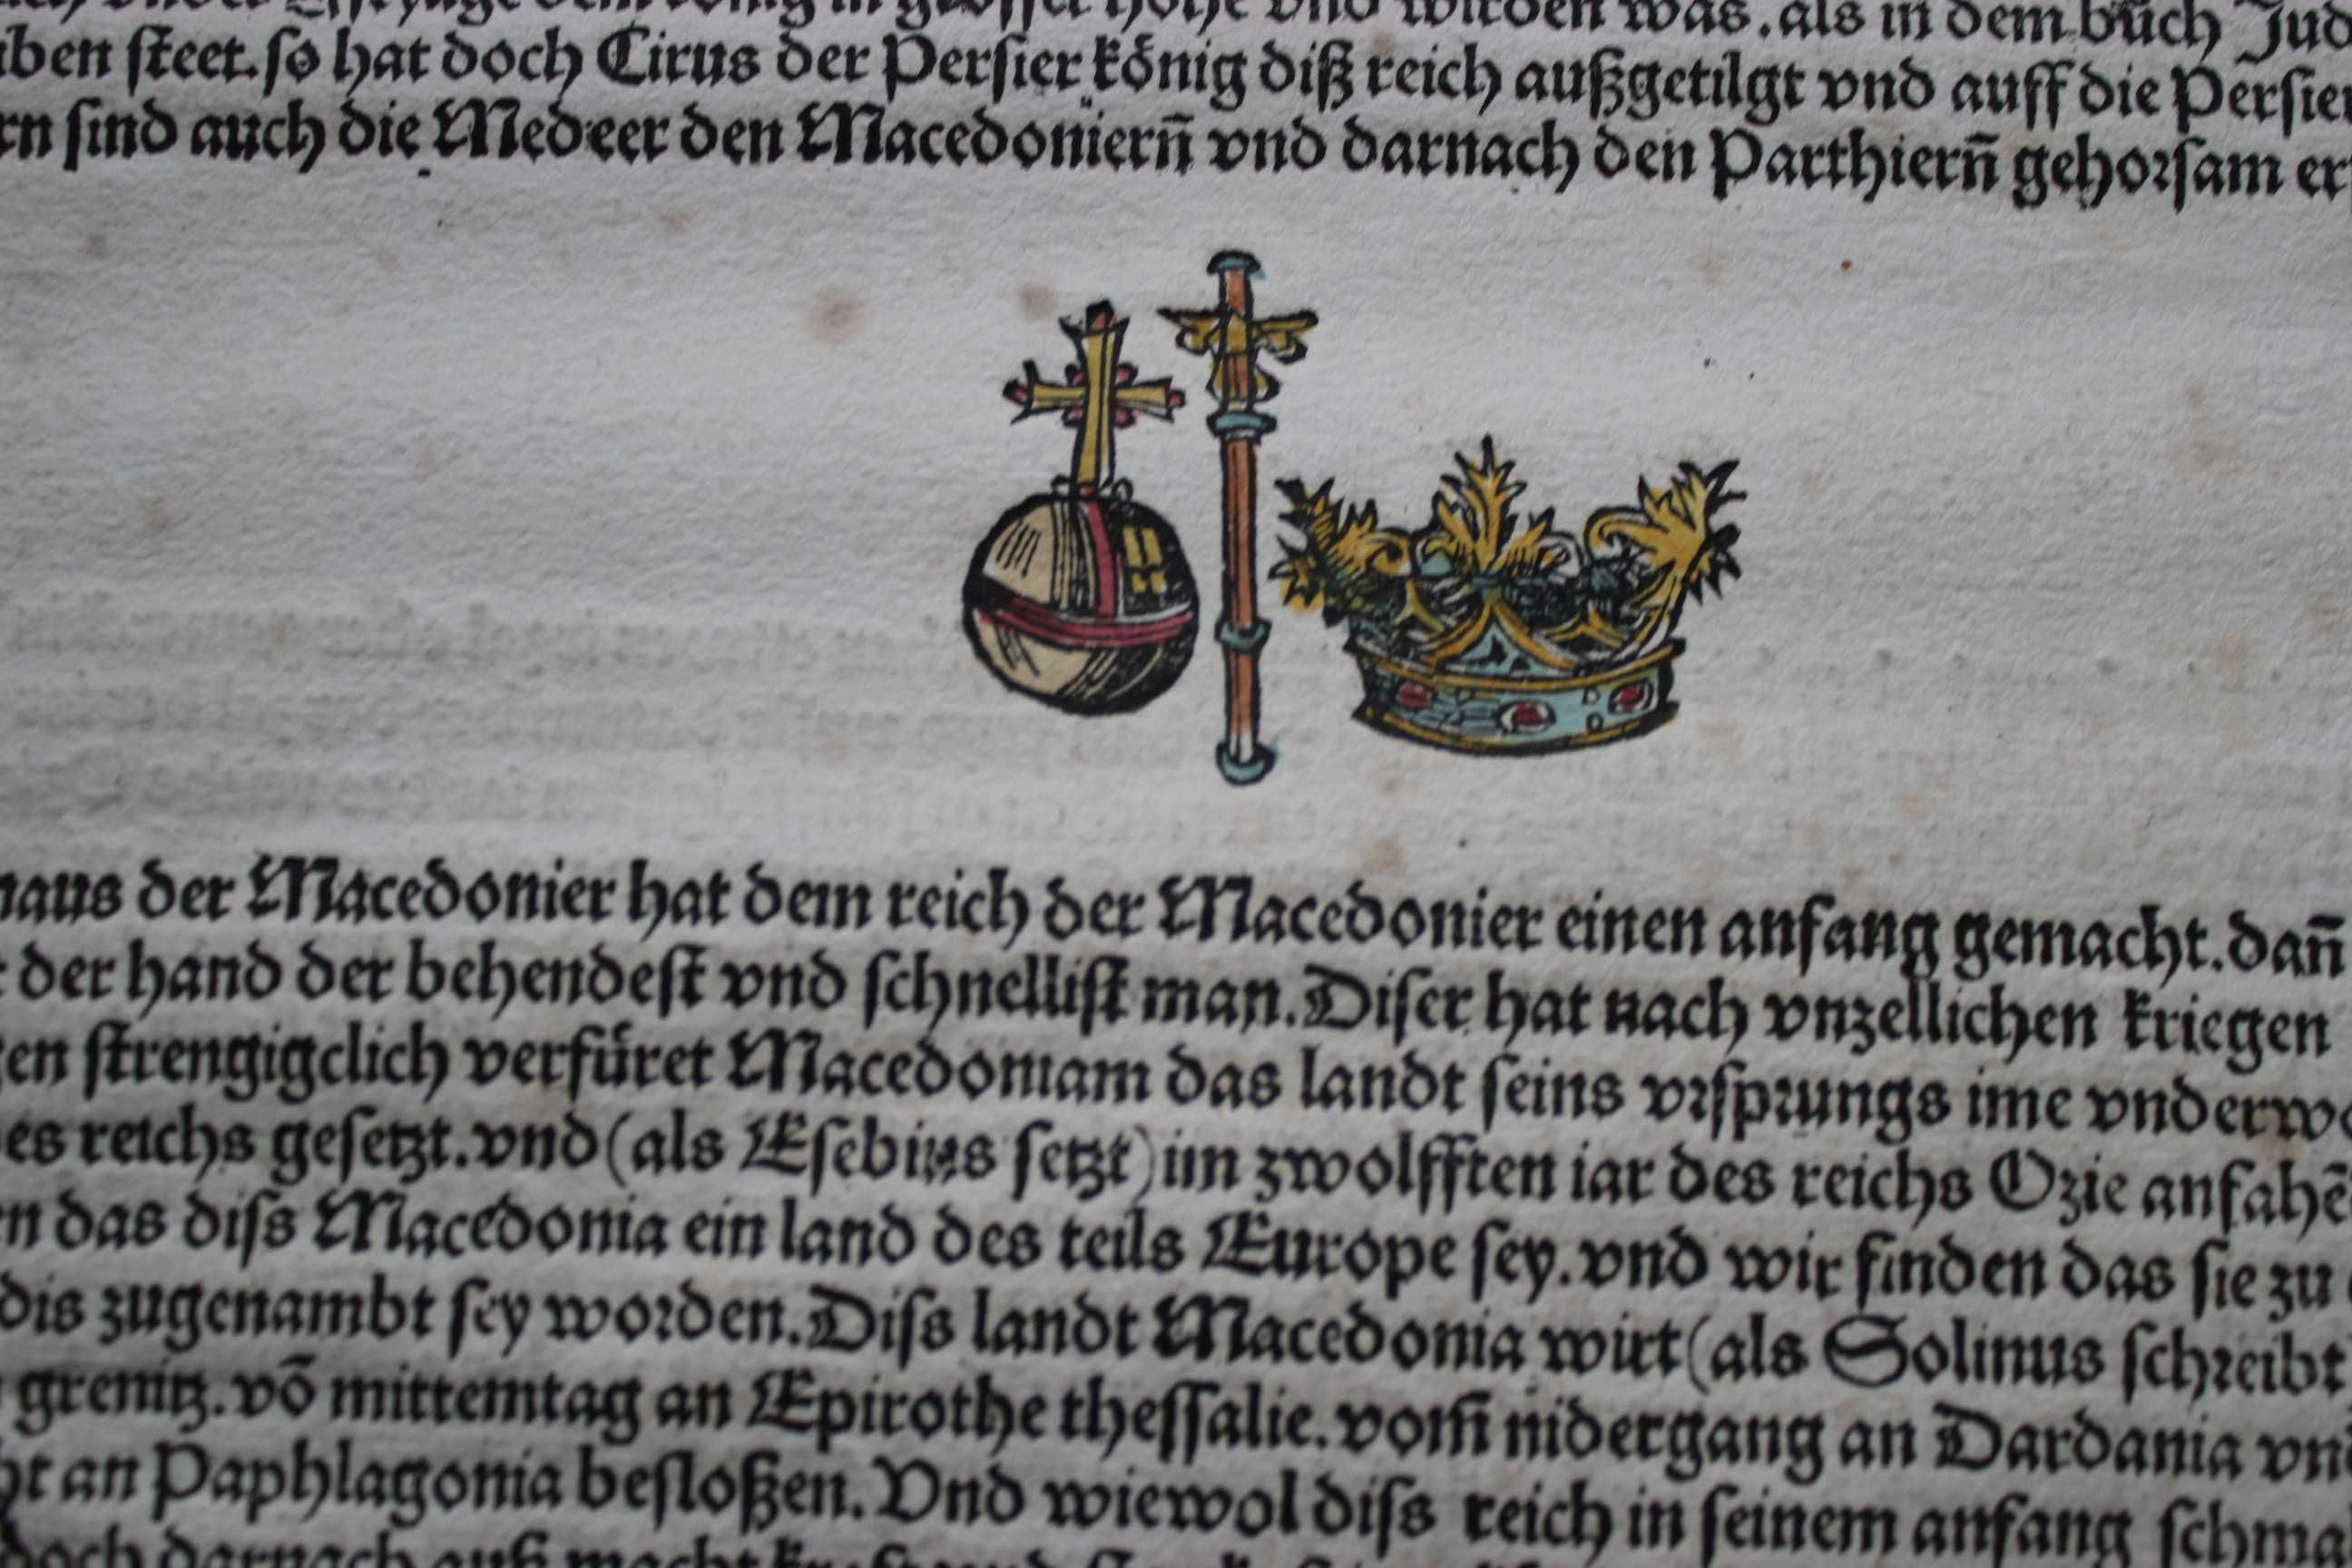 in grosser höhe vnd wirden was.als in dem bůch Jud
ben steet.so hat doch Cirus der Persier kőnig diß reich außgetilgt vnd auff die Persier
rn sind auch die Medeer den Macedoniern̄ vnd darnach den Parthiern̄ gehorsam er
naus der Macedonier hat dem reich der Macedonier einen anfang gemacht.dan̄
der hand der behendest vnd schnellist man.Diser hat nach vnzellichen kriegen
en strengigclich verfűret Macedoniam das landt seins vrsprungs ime vnderwo
es reichs gesetzt.vnd (als Esebius setzt) im zwolfften iar des reichs Ozie anfahē
n das diss Macedonia ein land des teils Europe sey.vnd wir finden das sie zu
dis zugenambt sey worden.Diss landt Macedonia wirt (als Solinus schreibt
grenitz.vō mittemtag an Epirothe thessalie.vom̄ nidergang an Dardania vn
ht an Paphlagonia besloßen.Vnd wiewol diss reich in seinem anfang schma
doch darnach auß macht